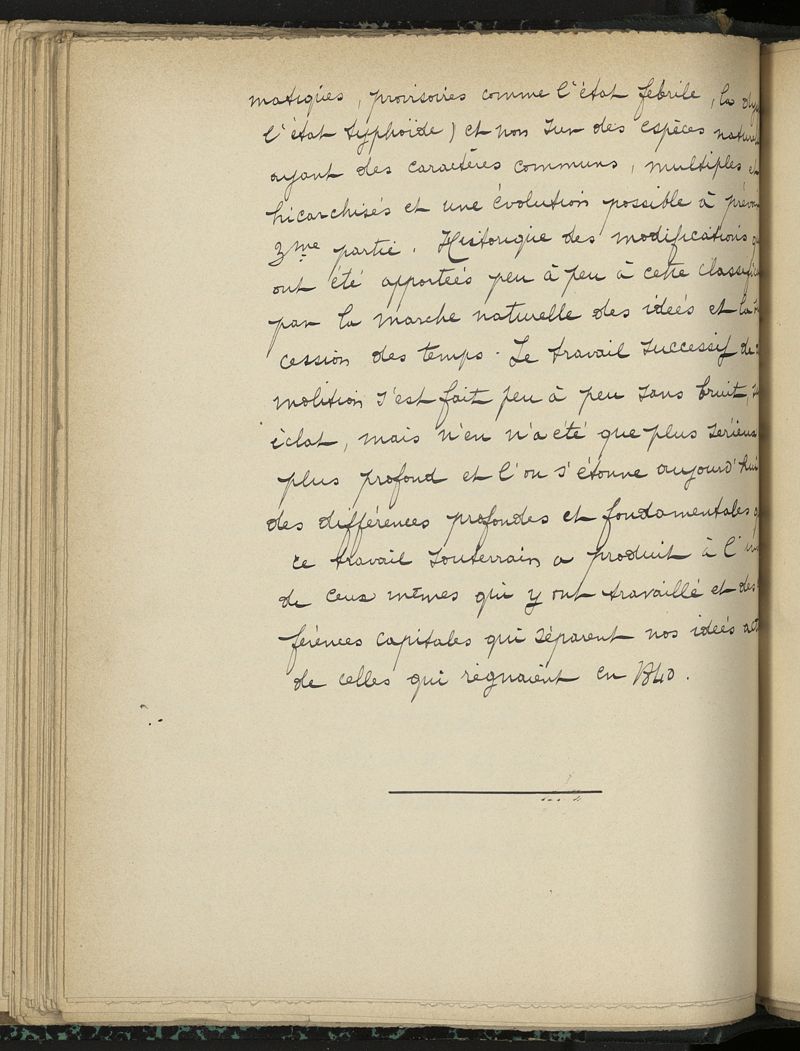 matiques, provisoires comme l'état febrile, la
l'état typhoïde) et non sur des espèces nature
ayant des caractères communs, multiples et
hierarchisés et une évolution possible à prévoi
3me partie. Historique des modifications
ont été apportées peu à peu à cette classifi
par la marche naturelle des ideés et la
cession des temps. Le travail successif de
molition s'est fait peu à peu sans bruit,
éclat, mais n'en n'a été que plus serieux
plus profond et l'on s'étonne aujourd'hui
des différences profondes et fondamentales
ce travail souterrain a produit à l'in
de ceux mêmes qui y ont travaillé et des
férences capitales qui séparent nos ideés act
de celles qui règnaient en 1840.